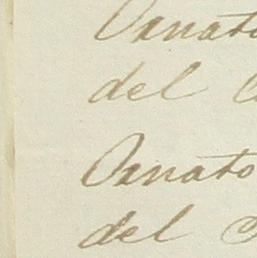 Ornato
del
Ornato
del